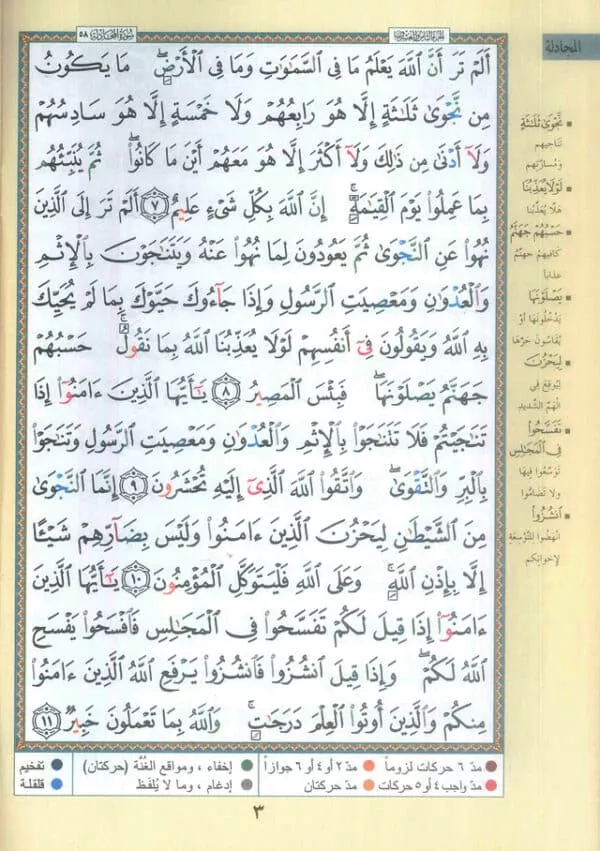 الجزء الثامن والعشرون
سورة المجادلة ٥٨
المجادلة
أَلَمْ تَرَ أَنَّ اللَّهَ يَعْلَمُ مَا فِي السَّمَٰوَٰتِ وَمَا فِي الْأَرْضِ ۖ مَا يَكُونُ
مِن نَّجْوَىٰ ثَلَٰثَةٍ إِلَّا هُوَ رَابِعُهُمْ وَلَا خَمْسَةٍ إِلَّا هُوَ سَادِسُهُمْ
وَلَآ أَدْنَىٰ مِن ذَٰلِكَ وَلَآ أَكْثَرَ إِلَّا هُوَ مَعَهُمْ أَيْنَ مَا كَانُوا۟ ۖ ثُمَّ يُنَبِّئُهُم
بِمَا عَمِلُوا۟ يَوْمَ الْقِيَٰمَةِ ۚ إِنَّ اللَّهَ بِكُلِّ شَىْءٍ عَلِيمٌ ٧ أَلَمْ تَرَ إِلَى الَّذِينَ
نُهُوا۟ عَنِ النَّجْوَىٰ ثُمَّ يَعُودُونَ لِمَا نُهُوا۟ عَنْهُ وَيَتَنَٰجَوْنَ بِالْإِثْمِ
وَالْعُدْوَٰنِ وَمَعْصِيَتِ الرَّسُولِ وَإِذَا جَآءُوكَ حَيَّوْكَ بِمَا لَمْ يُحَيِّكَ
بِهِ اللَّهُ وَيَقُولُونَ فِىٓ أَنفُسِهِمْ لَوْلَا يُعَذِّبُنَا اللَّهُ بِمَا نَقُولُ ۚ حَسْبُهُمْ
جَهَنَّمُ يَصْلَوْنَهَا ۖ فَبِئْسَ الْمَصِيرُ ٨ يَٰٓأَيُّهَا الَّذِينَ ءَامَنُوٓا۟ إِذَا
تَنَٰجَيْتُمْ فَلَا تَتَنَٰجَوْا۟ بِالْإِثْمِ وَالْعُدْوَٰنِ وَمَعْصِيَتِ الرَّسُولِ وَتَنَٰجَوْا۟
بِالْبِرِّ وَالتَّقْوَىٰ ۖ وَاتَّقُوا۟ اللَّهَ الَّذِىٓ إِلَيْهِ تُحْشَرُونَ ٩ إِنَّمَا النَّجْوَىٰ
مِنَ الشَّيْطَٰنِ لِيَحْزُنَ الَّذِينَ ءَامَنُوا۟ وَلَيْسَ بِضَآرِّهِمْ شَيْـًٔا
إِلَّا بِإِذْنِ اللَّهِ ۚ وَعَلَى اللَّهِ فَلْيَتَوَكَّلِ الْمُؤْمِنُونَ ١٠ يَٰٓأَيُّهَا الَّذِينَ
ءَامَنُوٓا۟ إِذَا قِيلَ لَكُمْ تَفَسَّحُوا۟ فِى الْمَجَٰلِسِ فَافْسَحُوا۟ يَفْسَحِ
اللَّهُ لَكُمْ ۖ وَإِذَا قِيلَ انشُزُوا۟ فَانشُزُوا۟ يَرْفَعِ اللَّهُ الَّذِينَ ءَامَنُوا۟
مِنكُمْ وَالَّذِينَ أُوتُوا۟ الْعِلْمَ دَرَجَٰتٍ ۚ وَاللَّهُ بِمَا تَعْمَلُونَ خَبِيرٌ ١١
■ نَّجْوَىٰ ثَلَٰثَةٍ
تناجيهم
ومُسارّتهم
■ لَوْلَا يُعَذِّبُنَا
هلّا يُعذّبنا
■ حَسْبُهُمْ جَهَنَّمُ
كافيهم جهنّم
عذاباً
■ يَصْلَوْنَهَا
يَدْخُلونَها أو
يُقاسون حَرَّها
■ لِيَحْزُنَ
ليُوقع في
الهمّ الشّديد
■ تَفَسَّحُوا۟
فِى الْمَجَٰلِسِ
توسّعوا فيها
ولا تضامُّوا
■ انشُزُوا۟
انهَضُوا للتّوسعة
لإخوانكم
● مدّ ٦ حركات لزوماً ● مدّ ٢ أو ٤ أو ٦ جوازاً ● إخفاء، ومواقع الغُنَّة (حركتان) ● تفخيم
● مدّ واجب ٤ أو ٥ حركات ● مدّ حركتان ● إدغام، وما لا يُلفَظ ● قلقلة
٣